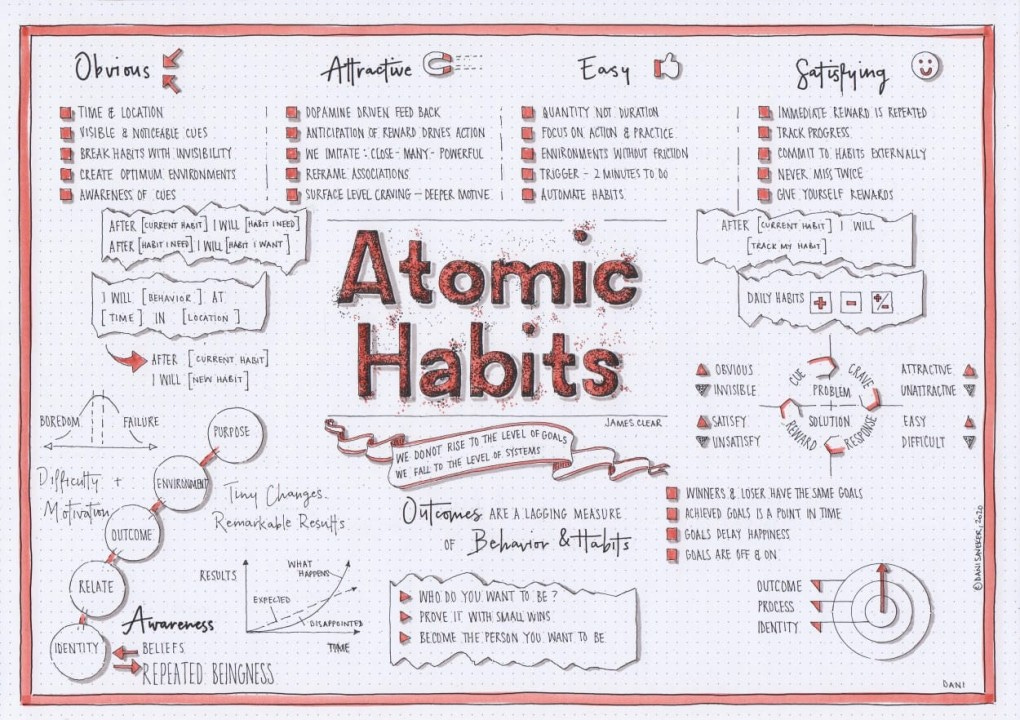 Obvious
TIME & LOCATION
VISIBLE & NOTICEABLE CUES
BREAK HABITS WITH INVISIBILITY
CREATE OPTIMUM ENVIRONMENTS
AWARENESS OF CUES
Attractive
DOPAMINE DRIVEN FEED BACK
ANTICIPATION OF REWARD DRIVES ACTION
WE IMITATE : CLOSE - MANY - POWERFUL
REFRAME ASSOCIATIONS
SURFACE LEVEL CRAVING - DEEPER MOTIVE
Easy
QUANTITY NOT DURATION
FOCUS ON ACTION & PRACTICE
ENVIRONMENTS WITHOUT FRICTION
TRIGGER - 2 MINUTES TO DO
AUTOMATE HABITS
Satisfying
IMMEDIATE REWARD IS REPEATED
TRACK PROGRESS
COMMIT TO HABITS EXTERNALLY
NEVER MISS TWICE
GIVE YOURSELF REWARDS
AFTER [CURRENT HABIT] I WILL [HABIT I NEED]
AFTER [HABIT I NEED] I WILL [HABIT I WANT]
I WILL [BEHAVIOR] AT
[TIME] IN [LOCATION]
AFTER [CURRENT HABIT]
I WILL [NEW HABIT]
Atomic
Habits
JAMES CLEAR
WE DO NOT RISE TO THE LEVEL OF GOALS
WE FALL TO THE LEVEL OF SYSTEMS
AFTER [CURRENT HABIT] I WILL
[TRACK MY HABIT]
DAILY HABITS + - +/-
OBVIOUS
INVISIBLE
SATISFY
UNSATISFY
CUE
CRAVE
PROBLEM
SOLUTION
REWARD
RESPONSE
ATTRACTIVE
UNATTRACTIVE
EASY
DIFFICULT
BOREDOM
FAILURE
Difficulty +
Motivation
PURPOSE
ENVIRONMENT
OUTCOME
RELATE
IDENTITY
Tiny Changes.
Remarkable Results
Awareness
BELIEFS
REPEATED BEINGNESS
RESULTS
WHAT
HAPPENS
EXPECTED
DISAPPOINTED
TIME
Outcomes ARE A LAGGING MEASURE
OF Behavior & Habits
WHO DO YOU WANT TO BE?
PROVE IT WITH SMALL WINS
BECOME THE PERSON YOU WANT TO BE
WINNERS & LOSER HAVE THE SAME GOALS
ACHIEVED GOALS IS A POINT IN TIME
GOALS DELAY HAPPINESS
GOALS ARE OFF & ON
OUTCOME
PROCESS
IDENTITY
2020
DANI